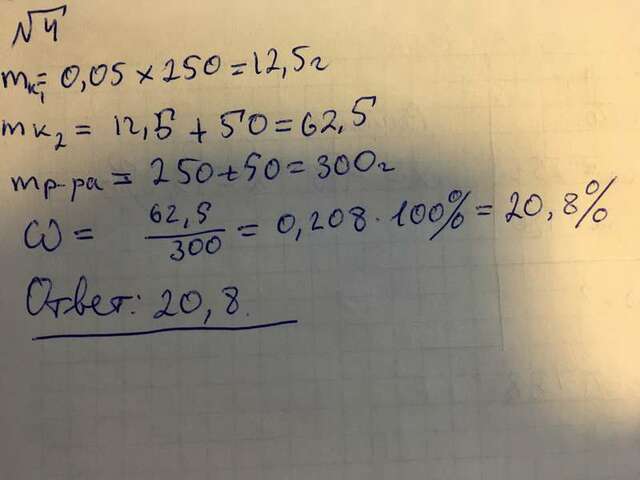 №4
mк₁ = 0,05 × 250 = 12,5г
mк₂ = 12,5 + 50 = 62,5
mр-ра = 250 + 50 = 300г
ω = 62,5/300 = 0,208 · 100% = 20,8%
Ответ: 20,8.